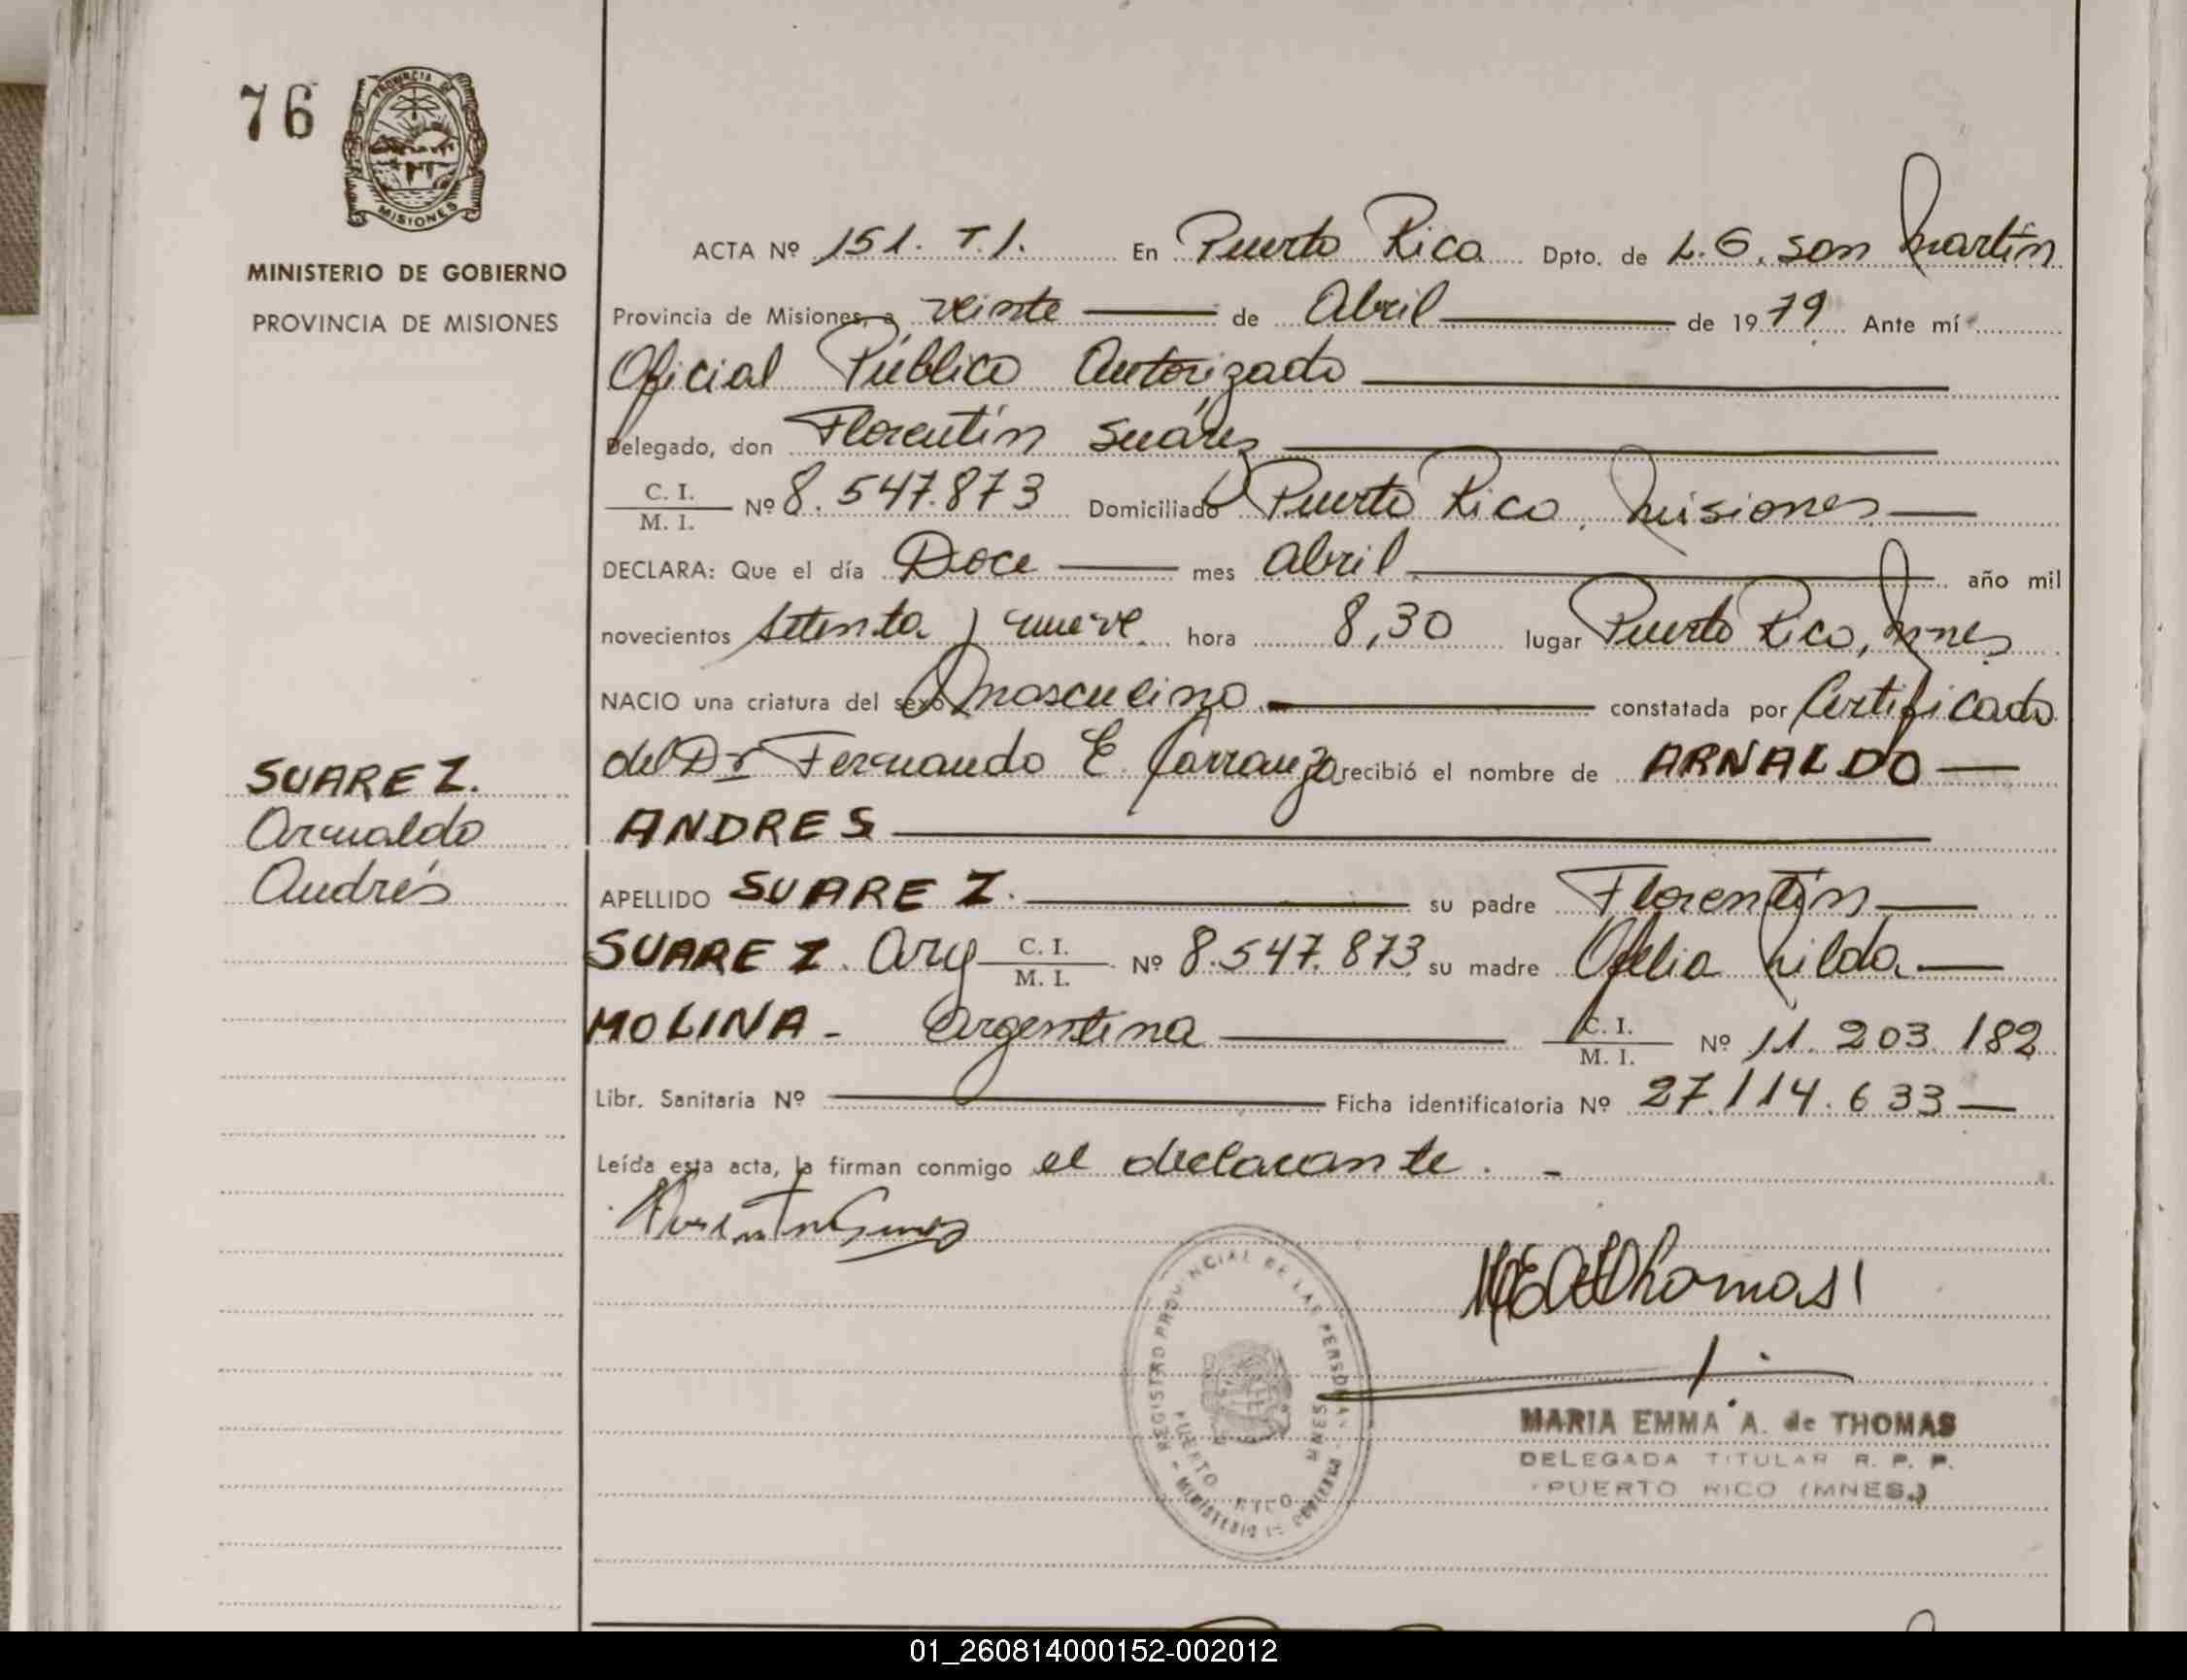 76
PROVINCIA DE
MISIONES
MINISTERIO DE GOBIERNO
PROVINCIA DE MISIONES
ACTA Nº 151. T.1. En Puerto Rico Dpto. de L.G. San Martín
Provincia de Misiones, a veinte de Abril de 1979 Ante mí
Oficial Público Autorizado
Delegado, don Florentín Suárez
C. I.
M. I. Nº 8.547.873 Domiciliado Puerto Rico, Misiones
DECLARA: Que el día Doce mes abril año mil
novecientos setenta y nueve hora 8,30 lugar Puerto Rico, Mnes
NACIO una criatura del sexo masculino constatada por Certificado
del Dr Fernando E. Carranza recibió el nombre de ARNALDO
ANDRES
SUAREZ.
Arnaldo
Andrés
APELLIDO SUAREZ. su padre Florentín
SUAREZ. Arg C. I.
M. I. Nº 8.547.873 su madre Ofelia Hilda
MOLINA - Argentina C. I.
M. I. Nº 11.203.182
Libr. Sanitaria Nº Ficha identificatoria Nº 27.114.633
Leída esta acta, la firman conmigo el declarante. -
REGISTRO PROVINCIAL DE LAS PERSONAS
PUERTO RICO MNES
MINISTERIO DE GOBIERNO
MARIA EMMA A. de THOMAS
DELEGADA TITULAR R. P. P.
PUERTO RICO (MNES.)
01_260814000152-002012